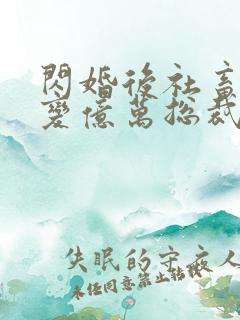 閃婚後社畜
變億萬總裁
失眠的守夜人
未經同意禁止轉載